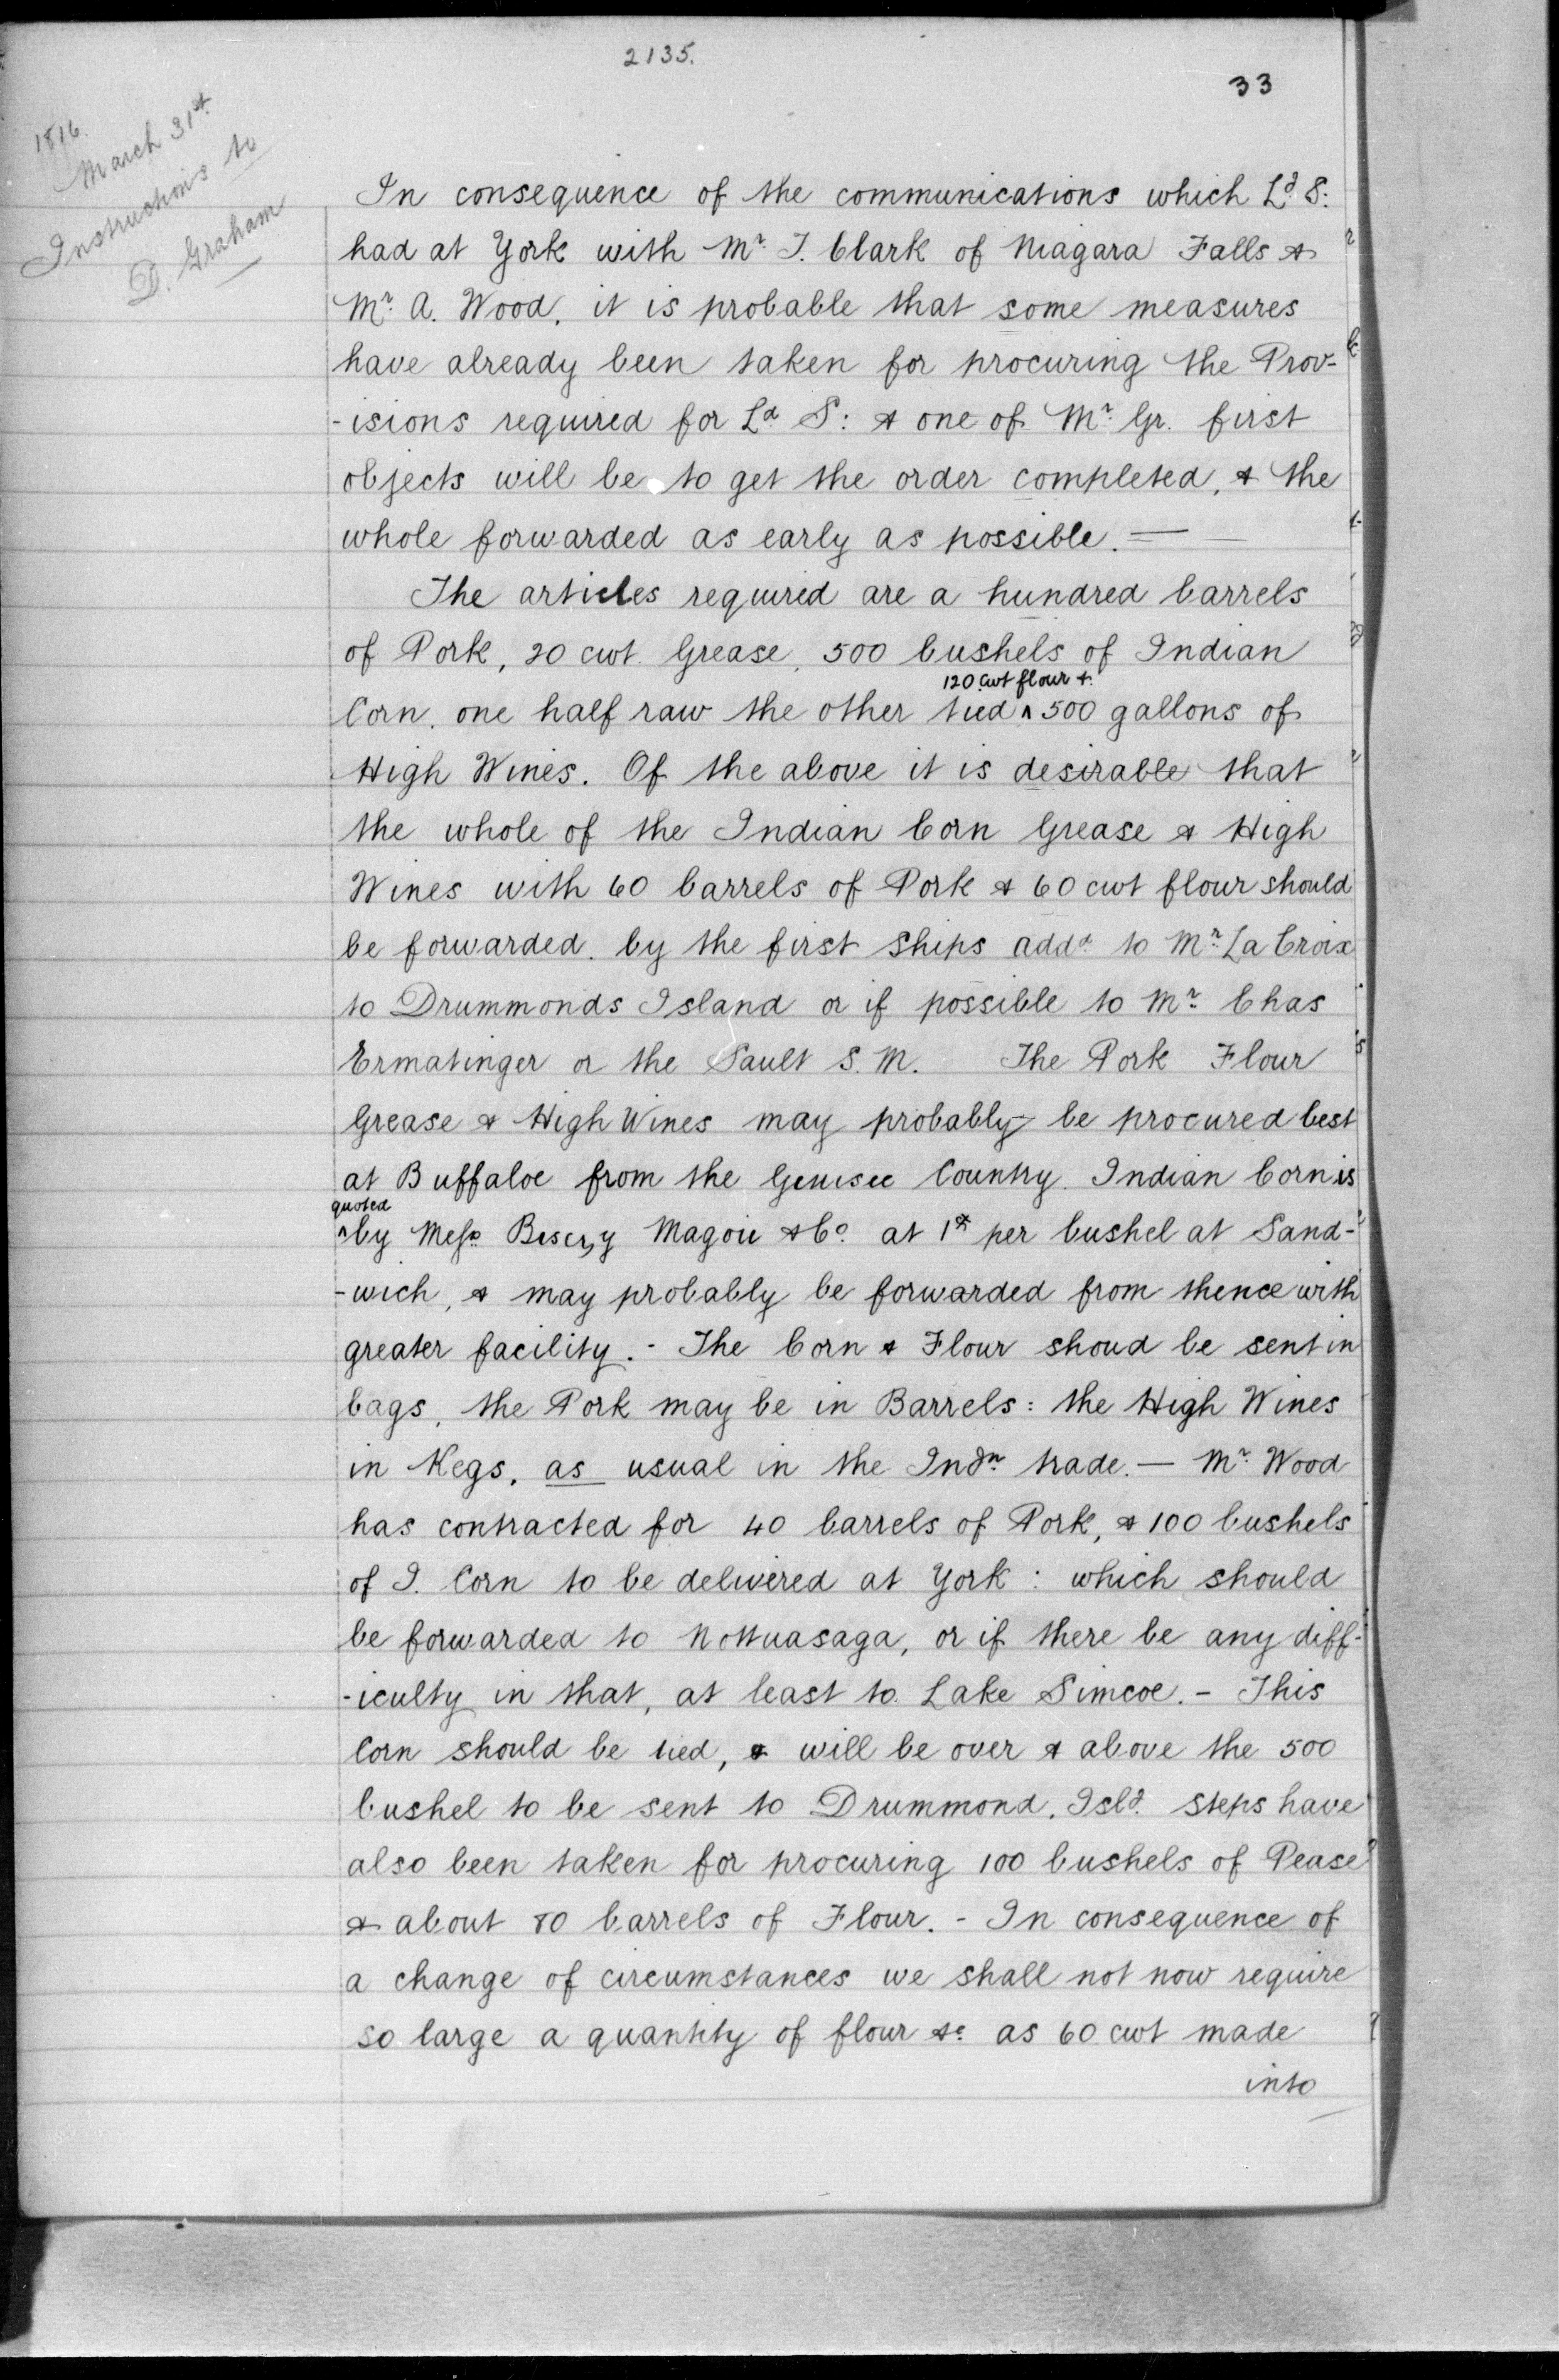 2135.
33
1816.
March 31st.
Instructions to
D. Graham
In consequence of the communications which Ld. S:
had at York with Mr. T. Clark of Niagara Falls &
Mr. A. Wood, it is probable that some measures
have already been taken for procuring the Prov-
-isions required for Ld. S: & one of Mr. Gr. first
objects will be to get the order completed, & the
whole forwarded as early as possible. —
The articles required are a hundred barrels
of Pork, 20 cwt. Grease, 500 bushels of Indian
120 cwt flour &
Corn, one half raw the other lied ^ 500 gallons of
High Wines. Of the above it is desirable that
the whole of the Indian Corn Grease & High
Wines with 60 barrels of Pork & 60 cwt flour should
be forwarded by the first ships addd. to Mr. La Croix
to Drummonds Island or if possible to Mr. Chas
Ermatinger or the Sault S. M. The Pork Flour
Grease & High Wines may probably be procured best
at Buffaloe from the Genisee Country. Indian Corn is
quoted
^by Messrs. Magou & Co. at 1 per bushel at Sand-
-wich, & may probably be forwarded from thence with
greater facility. - The Corn & Flour shoud be sent in
bags, the Pork may be in Barrels: the High Wines
in Kegs, as usual in the Indn. trade. — Mr. Wood
has contracted for 40 barrels of Pork, & 100 bushels
of I. Corn to be delivered at York: which should
be forwarded to Nottuasaga, or if there be any diff-
-iculty in that, at least to Lake Simcoe. - This
Corn should be lied, & will be over & above the 500
bushel to be sent to Drummond. Isld. steps have
also been taken for procuring 100 bushels of Pease
& about 80 barrels of Flour. - In consequence of
a change of circumstances we shall not now require
so large a quantity of flour &c. as 60 cwt made
into